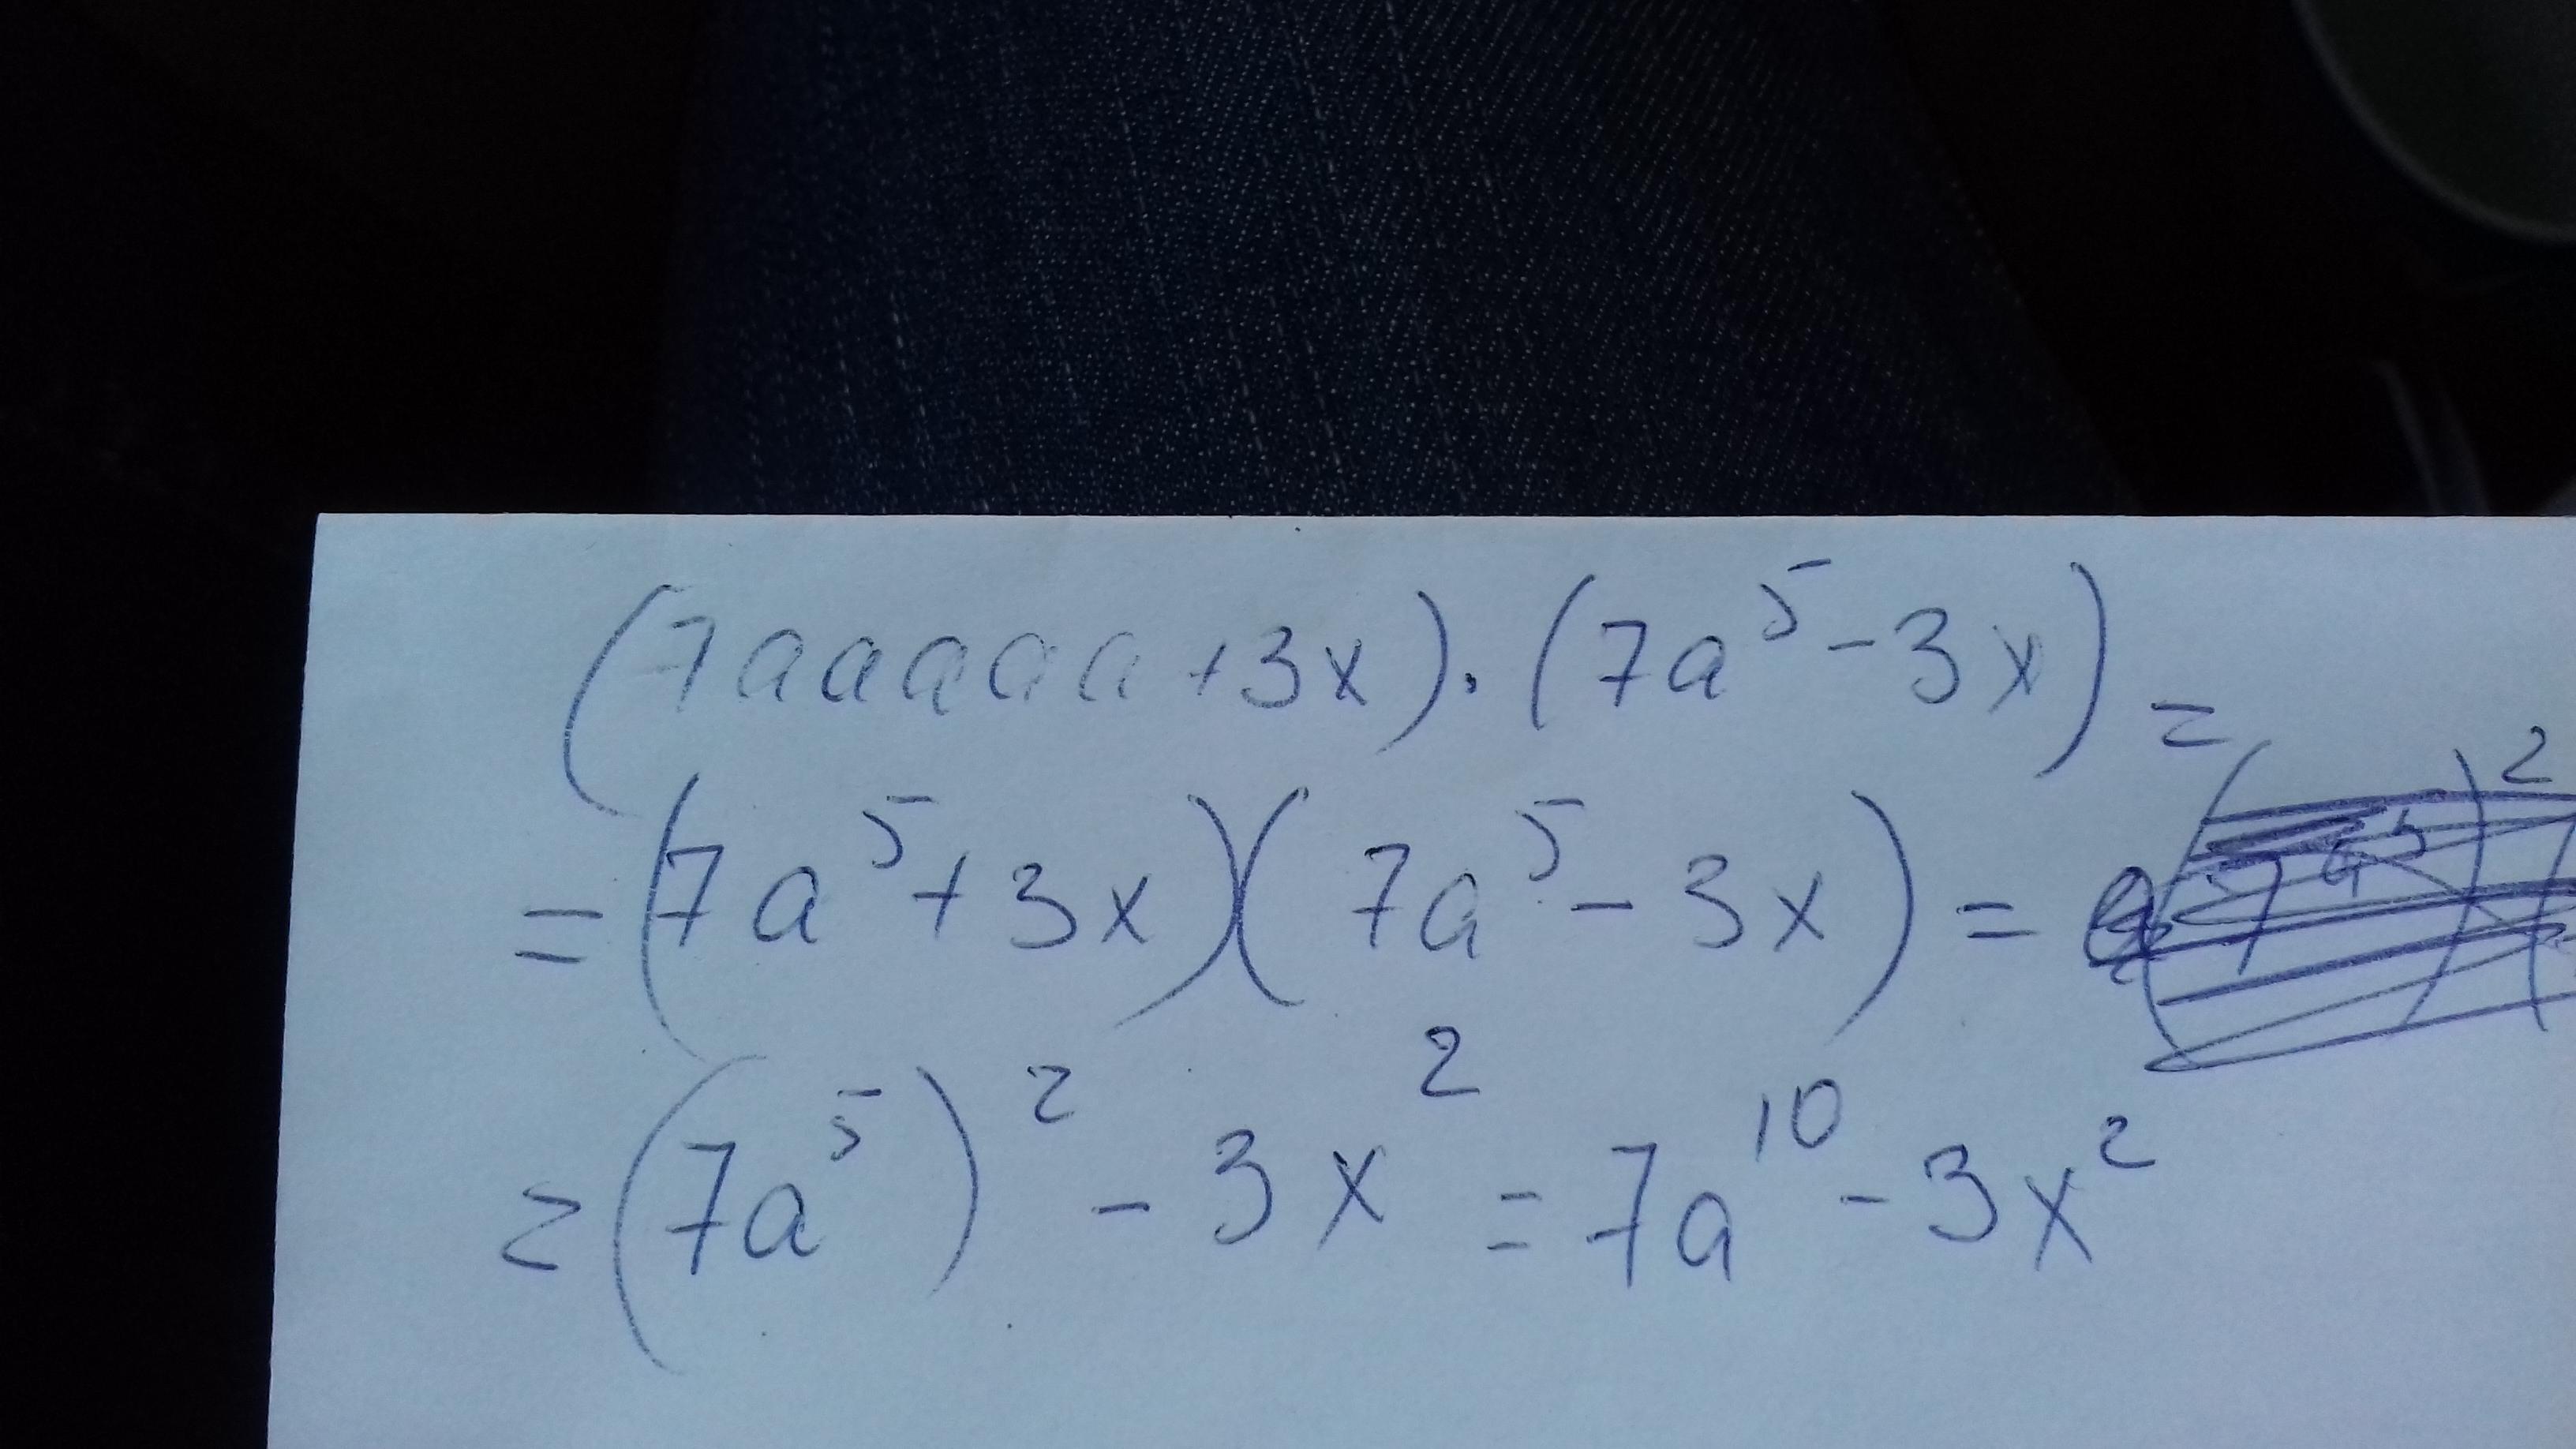 (7aaaaa+3x)·(7a⁵-3x)=
=(7a⁵+3x)(7a⁵-3x)=
=(7a⁵)²-3x²=7a¹⁰-3x²